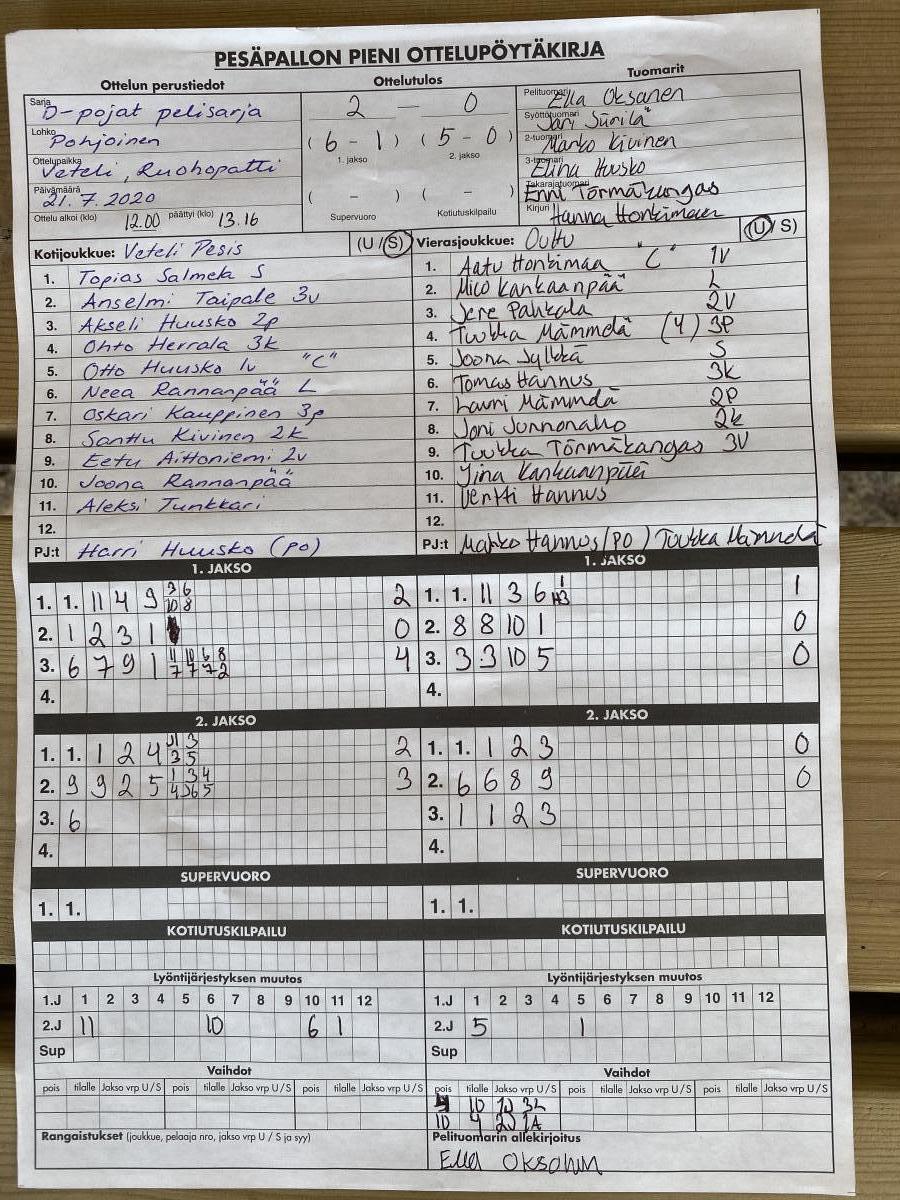 PESÄPALLON PIENI OTTELUPÖYTÄKIRJA
Ottelun perustiedot
Sarja D-pojat pelisarja
Lohko Pohjoinen
Ottelupaikka Veteli, Ruohopatti
Päivämäärä 21.7.2020
Ottelu alkoi (klo) 12.00 päättyi (klo) 13.16
Ottelutulos
2 — 0
( 6 - 1 ) ( 5 - 0 )
1. jakso 2. jakso
( - ) ( - )
Supervuoro Kotiutuskilpailu
Tuomarit
Pelituomari Ella Oksanen
Syöttötuomari Jari Siirilä
2-tuomari Marko Kivinen
3-tuomari Elina Huusko
Takarajatuomari Enni Törmäkangas
Kirjuri Hanna Honkimaa
Kotijoukkue: Veteli Pesis (U / S)
1. Topias Salmela S
2. Anselmi Taipale 3v
3. Akseli Huusko 2p
4. Ohto Herrala 3k
5. Otto Huusko 1v "C"
6. Neea Rannanpää L
7. Oskari Kauppinen 3p
8. Santtu Kivinen 2k
9. Eetu Aittoniemi 2v
10. Joona Rannanpää
11. Aleksi Tunkkari
12.
PJ:t Harri Huusko (PO)
Vierasjoukkue: OuHu (U / S)
1. Aatu Honkimaa "C" 1v
2. Mico Kankaanpää L
3. Jere Pahkala 2v
4. Tuukka Mämmelä (4) 3P
5. Joona Sylkkä S
6. Tomas Hannus 3k
7. Lauri Mämmelä 2P
8. Joni Junnonaho 2k
9. Tuukka Törmäkangas 3V
10. Jina Kankaanpää
11. Vertti Hannus
12.
PJ:t Marko Hannus (PO) Tuukka Mämmelä
1. JAKSO
1. 1. 11 4 9 3 6 10 8 2
2. 1 2 3 1 0
3. 6 7 9 1 11 10 6 8 7 7 7 2 4
4.
1. JAKSO
1. 1. 11 3 6 1 3 1
2. 8 8 10 1 0
3. 3 3 10 5 0
4.
2. JAKSO
1. 1. 1 2 4 11 3 3 5 2
2. 9 9 2 5 1 3 4 4 6 5 3
3. 6
4.
2. JAKSO
1. 1. 1 2 3 0
2. 6 6 8 9 0
3. 1 1 2 3
4.
SUPERVUORO
1. 1.
SUPERVUORO
1. 1.
KOTIUTUSKILPAILU
KOTIUTUSKILPAILU
Lyöntijärjestyksen muutos
1.J 1 2 3 4 5 6 7 8 9 10 11 12
2.J 11 10 6 1
Sup
Lyöntijärjestyksen muutos
1.J 1 2 3 4 5 6 7 8 9 10 11 12
2.J 5 1
Sup
Vaihdot
pois tilalle Jakso vrp U / S pois tilalle Jakso vrp U / S pois tilalle Jakso vrp U / S
Vaihdot
pois tilalle Jakso vrp U / S pois tilalle Jakso vrp U / S pois tilalle Jakso vrp U / S
10
10 4
Rangaistukset (joukkue, pelaaja nro, jakso vrp U / S ja syy)
Pelituomarin allekirjoitus
Ella Oksanen